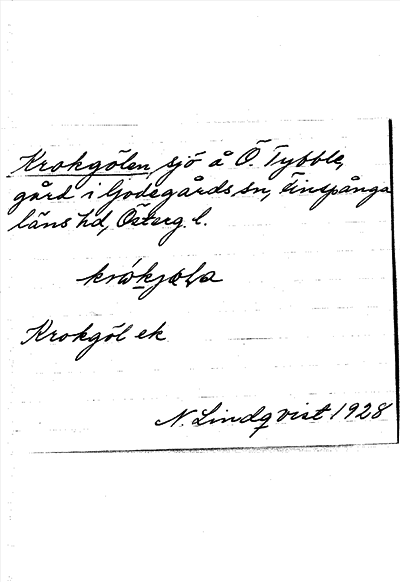 Krokgölen, sjö å Ö. Tybble,
gård i Godegårds sn, Finspånga
läns hd, Österg. l.
Krokgöl ek
N. Lindqvist 1928